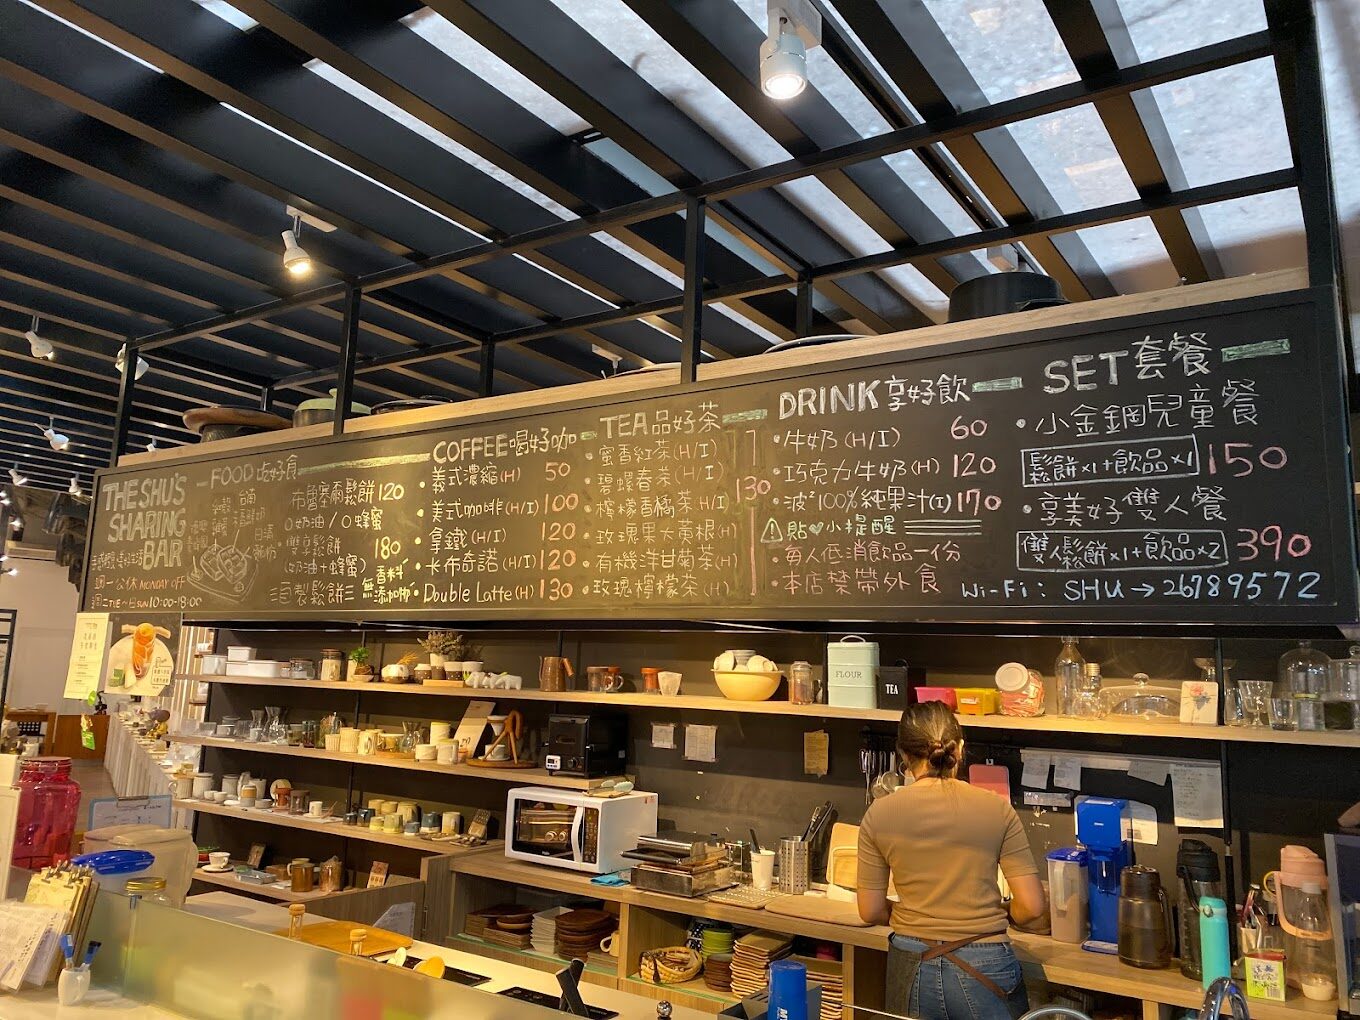 THE SHU'S
SHARING
BAR
週一公休 MONDAY OFF
週二TUE~日SUN 10:00-18:00
FOOD 吃好食
布魯塞爾鬆餅 120
O奶油/O蜂蜜
雙享鬆餅 180
(奶油+蜂蜜)
自製鬆餅
無香料
添加物
COFFEE喝好咖
•義式濃縮(H) 50
•美式咖啡(H/I) 100
•拿鐵(H/I) 120
•卡布奇諾(H/I) 120
•Double Latte(H) 130
TEA品好茶
•蜜香紅茶(H/I)
•碧螺春茶(H/I)
•檸檬香橘茶H/I)
•玫瑰果大黃根(H)
•有機洋甘菊茶(H)
•玫瑰檸檬茶(H)
130
DRINK享好飲
•牛奶(H/I) 60
•巧克力牛奶(H) 120
•波²100%純果汁(I) 170
貼♥小提醒
•每人低消飲品一份
•本店禁帶外食
SET套餐
•小金鋼兒童餐
鬆餅x1+飲品x1 150
•享美好雙人餐
雙人鬆餅x1+飲品x2 390
Wi-Fi: SHU→26789572
FLOUR
TEA